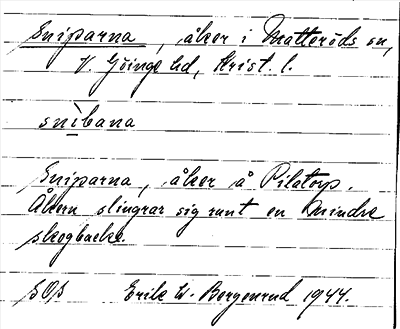 Sniparna, åker i Matteröds sn,
V. Göinge hd, Krist. l.
snìbana
Sniparna, åker å Pilatorp.
Åkern slingrar sig runt en mindre
skogbacke.
SOS Erik W. Bergenrud 1944.